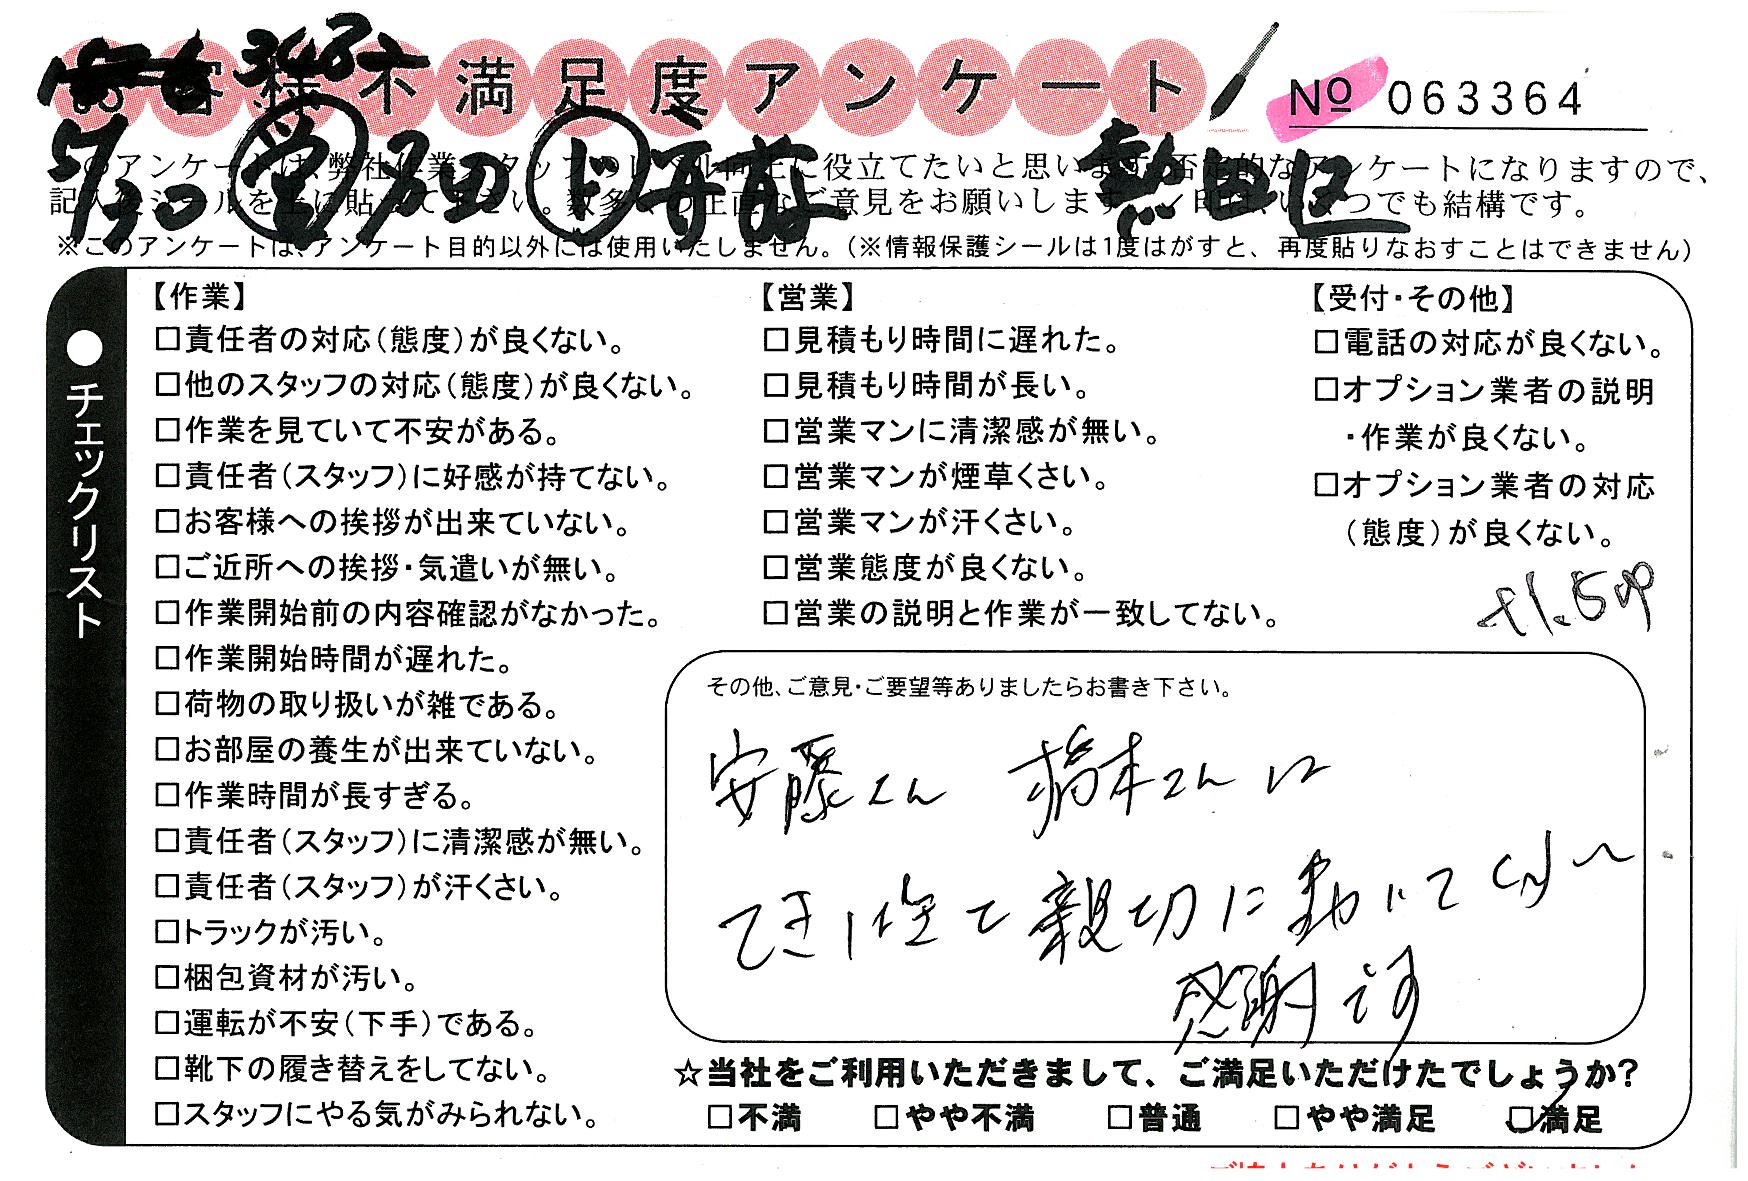 お客様不満足度アンケート
№ 063364
5/30 営 下田 ド 斉藤 熱田区
このアンケートは、弊社作業スタッフのレベル向上に役立てたいと思います。否定的なアンケートになりますので、
記入後シールを上に貼って下さい。数多くの正直なご意見をお願いします。レ印は、いくつでも結構です。
※このアンケートは、アンケート目的以外には使用いたしません。（※情報保護シールは1度はがすと、再度貼りなおすことはできません）
●チェックリスト
【作業】
□責任者の対応（態度）が良くない。
□他のスタッフの対応（態度）が良くない。
□作業を見ていて不安がある。
□責任者（スタッフ）に好感が持てない。
□お客様への挨拶が出来ていない。
□ご近所への挨拶・気遣いが無い。
□作業開始前の内容確認がなかった。
□作業開始時間が遅れた。
□荷物の取り扱いが雑である。
□お部屋の養生が出来ていない。
□作業時間が長すぎる。
□責任者（スタッフ）に清潔感が無い。
□責任者（スタッフ）が汗くさい。
□トラックが汚い。
□梱包資材が汚い。
□運転が不安（下手）である。
□靴下の履き替えをしてない。
□スタッフにやる気がみられない。
【営業】
□見積もり時間に遅れた。
□見積もり時間が長い。
□営業マンに清潔感が無い。
□営業マンが煙草くさい。
□営業マンが汗くさい。
□営業態度が良くない。
□営業の説明と作業が一致してない。
【受付・その他】
□電話の対応が良くない。
□オプション業者の説明
・作業が良くない。
□オプション業者の対応
（態度）が良くない。
+1.5P
その他、ご意見・ご要望等ありましたらお書き下さい。
安藤さん 橋本さんに
てきぱきと親切に動いてくれて
感謝です
☆当社をご利用いただきまして、ご満足いただけたでしょうか？
□不満 □やや不満 □普通 □やや満足 ☑満足